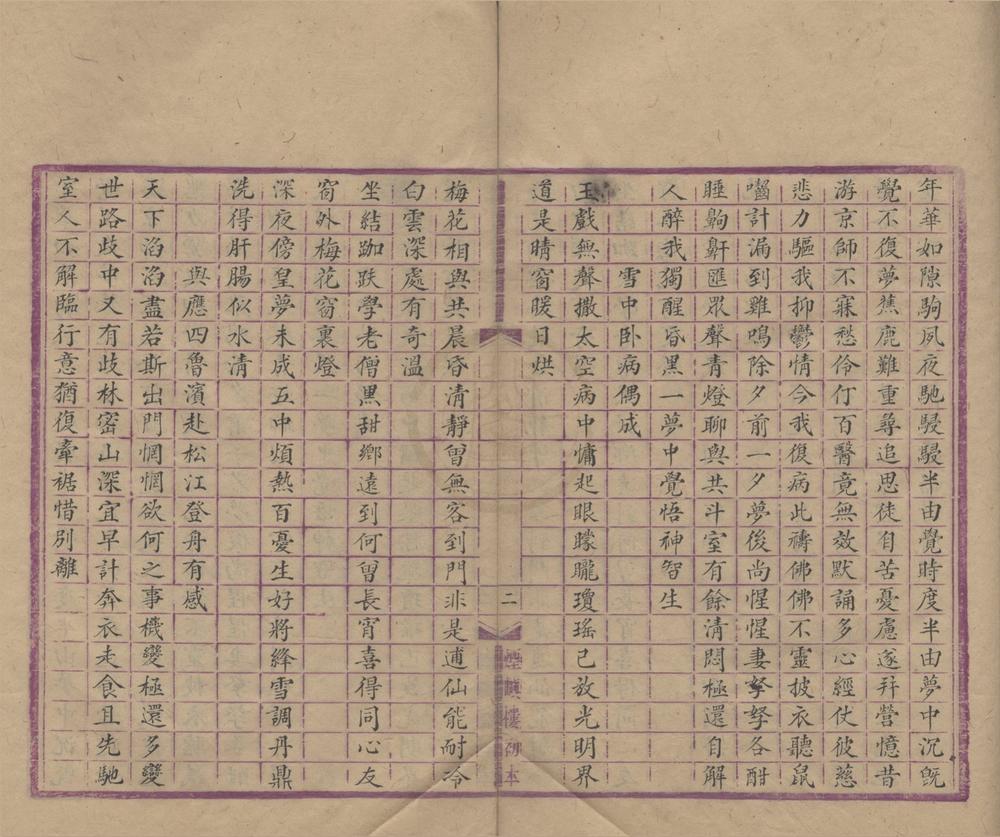 年華如隙駒夙夜馳駸駸半由覺時度半由夢中沉旣
覺不復夢蕉鹿難重尋追思徒自苦憂慮遂幷營憶昔
游京師不寐愁伶仃百醫竟無效默誦多心經仗彼慈
悲力驅我抑鬱情今我復病此禱佛佛不靈披衣聽鼠
囓計漏到雞鳴除夕前一夕夢後尚惺惺妻孥孥各酣
睡齁鼾匯眾聲青燈聊與共斗室有餘淸悶極還自解
人醉我獨醒昏黑一夢中覺悟神智生
雪中卧病偶成
玉戲無聲撒太空病中慵起眼矇矓瓊瑤已放光明界
道是晴窗暖日烘
二
煙嶼樓初本
梅花相與共晨昏清靜曾無客到門非是逋仙能耐冷
白雲深處有奇溫
坐結跏趺學老僧黑甜鄉遠到何曾長宵喜得同心友
窗外梅花窗裏燈
深夜傍皇夢未成五中煩熱百憂生好將絳雪調丹鼎
洗得肝腸似水清
與應四魯濱赴松江登舟有感
天下滔滔盡若斯出門惘惘欲何之事機變極還多變
世路歧中又有歧林密山深宜早計奔衣走食且先馳
室人不解臨行意猶復牽裾惜別離